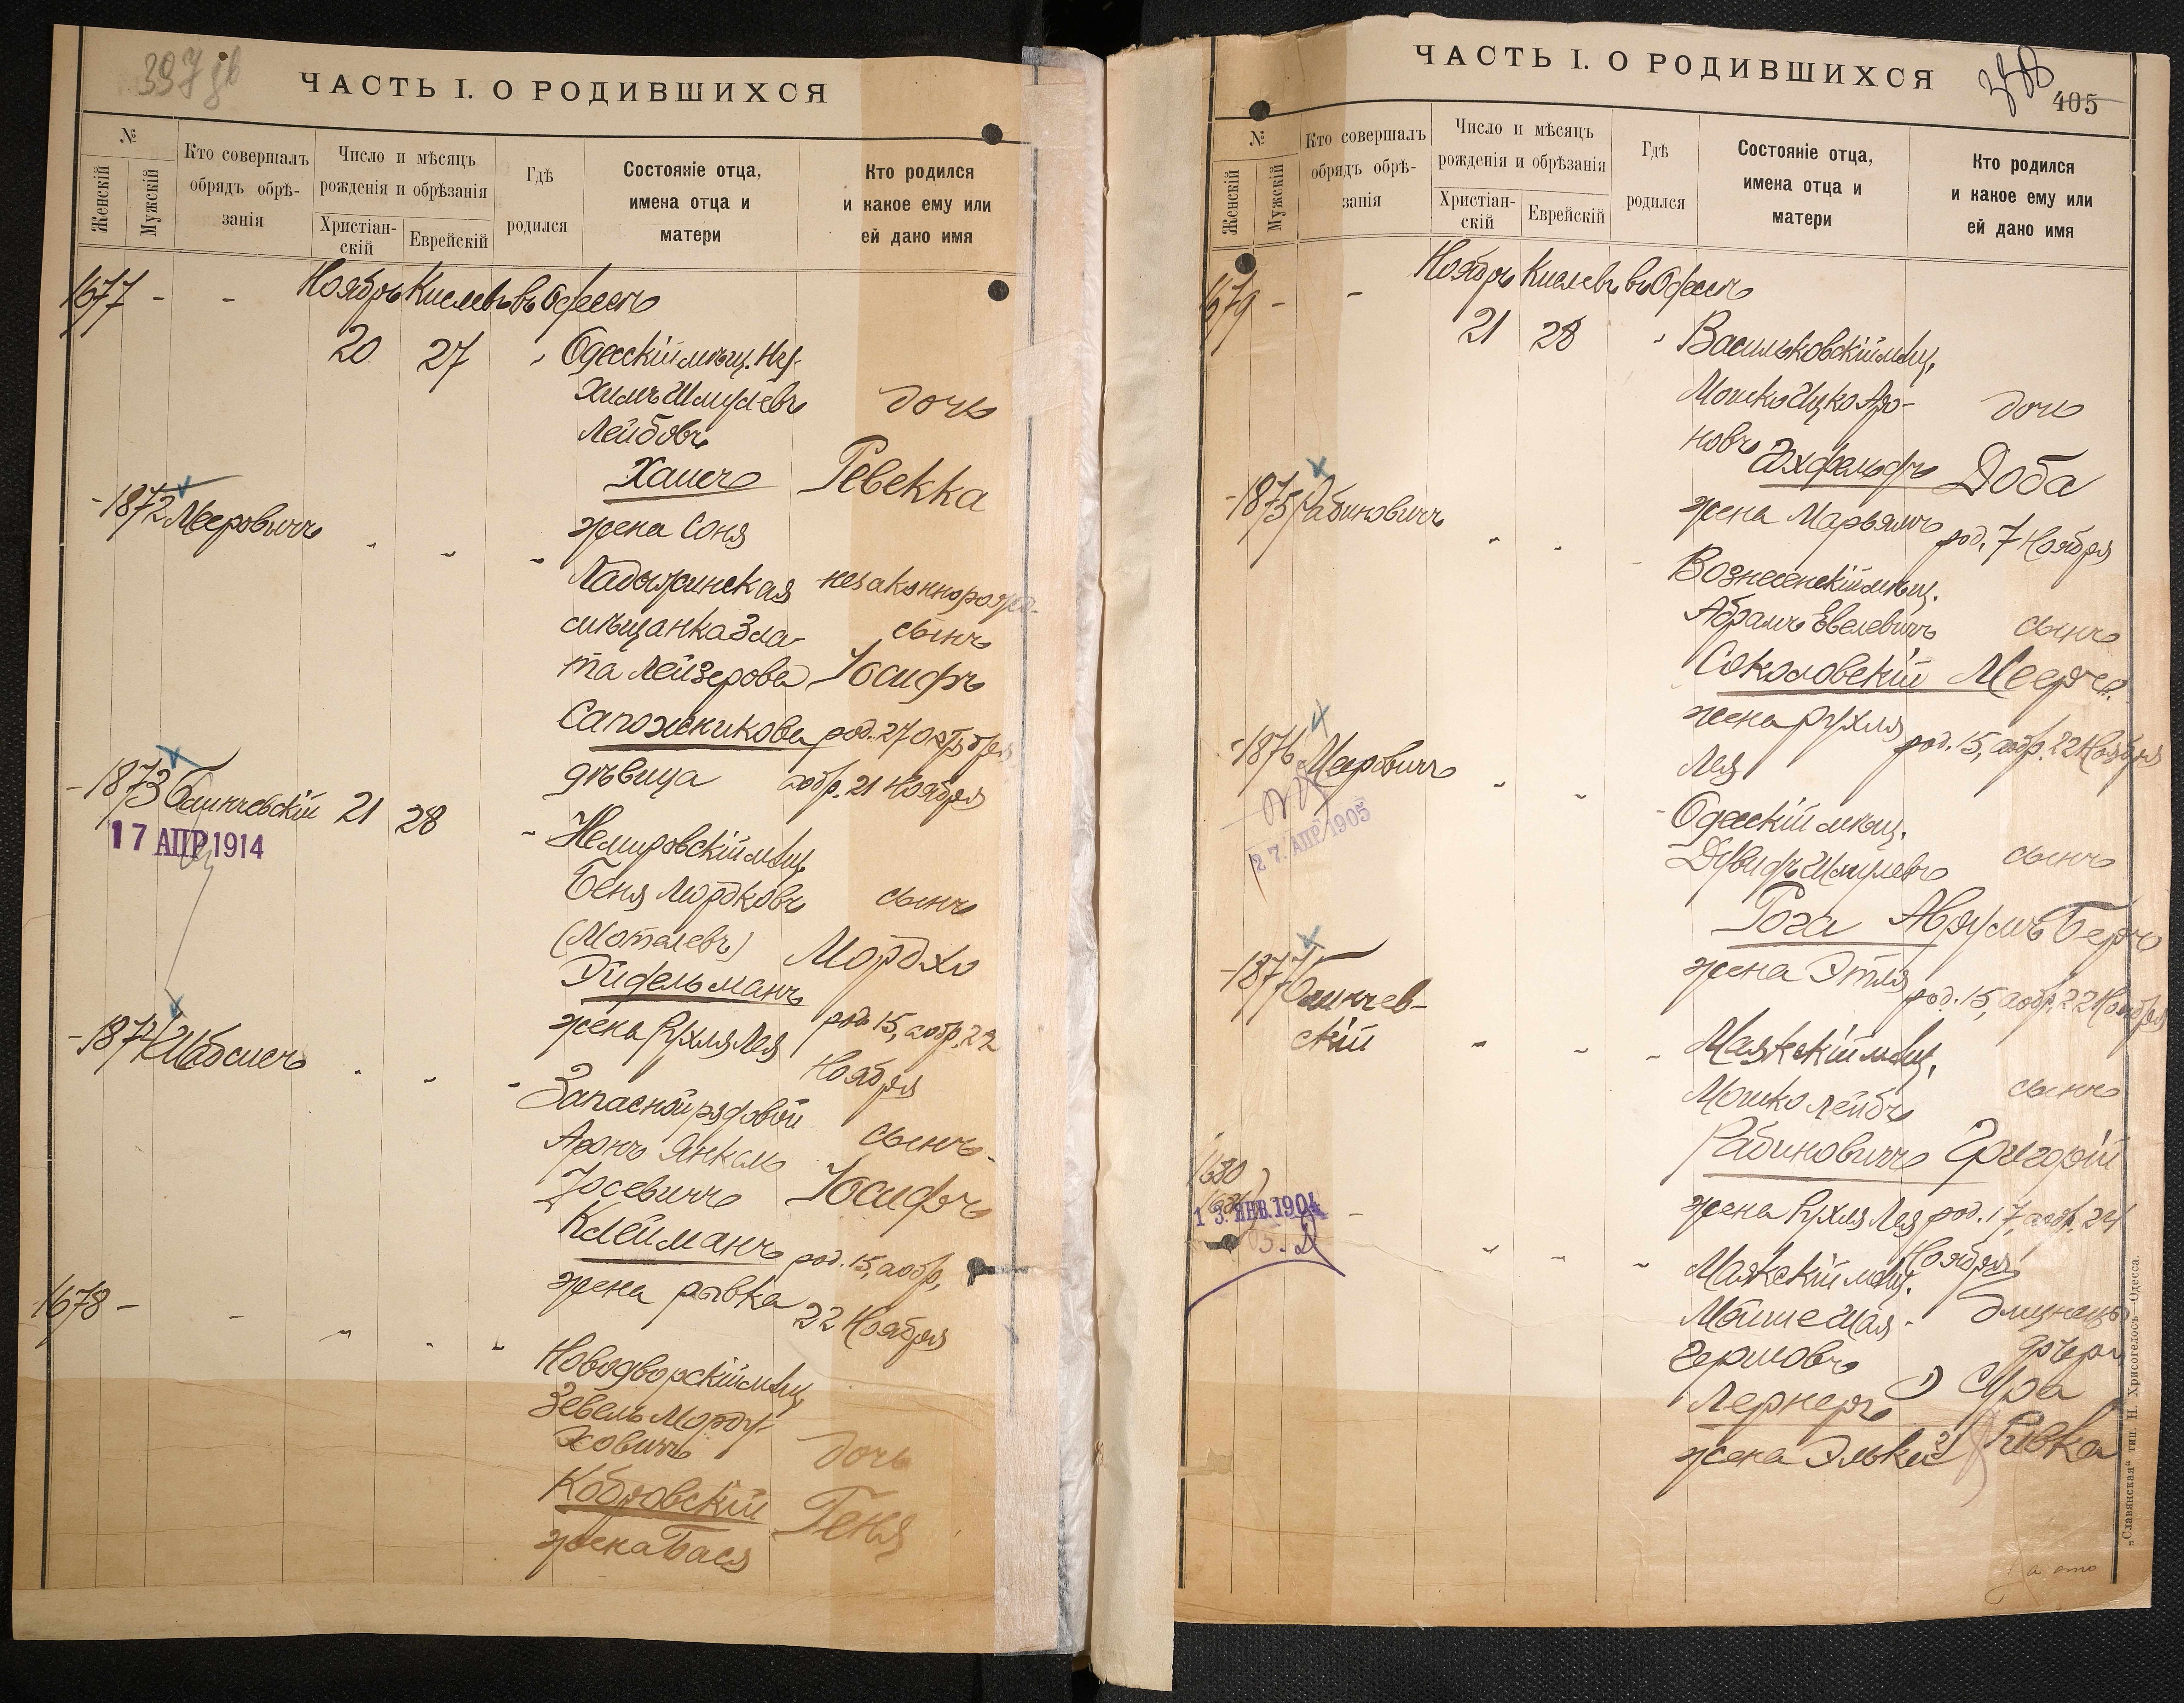 ЧАСТЬ I. О РОДИВШИХСЯ
№
Женскій
Мужскій
Кто совершалъ
обрядъ обрѣ-
занія
Число и мѣсяцъ
рожденія и обрѣзанія
Христіан-
скій
Еврейскій
Гдѣ
родился
Состояніе отца,
имена отца и
матери
Кто родился
и какое ему или
ей дано имя
1677 - -
Ноябрь Кислевъ въ Одессѣ
20 27
Одесскій мѣщ. Ну-
химъ Шмулевъ
Лейбовъ
Хаисъ
жена Соня
дочь
Ревекка
-1872 Мееровичъ
Ладыжинская
мѣщанка Зла-
та Лейзерова
Сапожникова
дѣвица
незаконнорожд.
сынъ
Іосифъ
род. 27 Октября
аобр. 21 Ноября
-1873 Блинчевскій 21 28
17 АПР 1914
Немировскій мѣщ.
Беня Мордковъ
(Мотелевъ)
Эйдельманъ
жена Рухля Лея
сынъ
Мордхо
род. 15, аобр. 22
Ноября
-1874 Шабсисъ
Запасной рядовой
Аронъ Янкель
Іосевичъ
Клейманъ
жена Рывка
сынъ
Іосифъ
род. 15, аобр.
22 Ноября
1678 - -
Новодворскій мѣщ.
Зевель Морду-
ховичъ
Кобровскій
жена Бася
дочь
Геня
ЧАСТЬ I. О РОДИВШИХСЯ
405
№
Женскій
Мужскій
Кто совершалъ
обрядъ обрѣ-
занія
Число и мѣсяцъ
рожденія и обрѣзанія
Христіан-
скій
Еврейскій
Гдѣ
родился
Состояніе отца,
имена отца и
матери
Кто родился
и какое ему или
ей дано имя
1679 - -
Ноябрь Кислевъ въ Одессѣ
21 28
Васильковскій мѣщ.
Мошко Ицко Аро-
новъ
жена Марьямъ
дочь
Доба
род. 7 Ноября
-1875 Рабиновичъ
Вознесенскій мѣщ.
Абрамъ Евелевичъ
Соколовскій
жена Рухля
Лея
сынъ
Мееръ
род. 15, аобр. 22 Ноября
-1876 Мееровичъ
27. АПР 1905
Одесскій мѣщ.
Дувидъ Шмулевъ
Рога
жена Этля
сынъ
Аврумъ Беръ
род. 15, аобр. 22 Ноября
-1877 Блинчев-
скій
Маякскій мѣщ.
Мошко Лейбъ
Рабиновичъ
жена Рухля Лея
сынъ
Григорій
род. 17, аобр. 24
Ноября
1680
1681
13. ЯНВ. 1904
Маякскій мѣщ.
Мойше Шая
Гершовъ
Лернеръ
жена Элька
близнецы
дочери
1) Сура
2) Ривка
„Славянская“ тип. Н. Хрисогелосъ—Одесса.